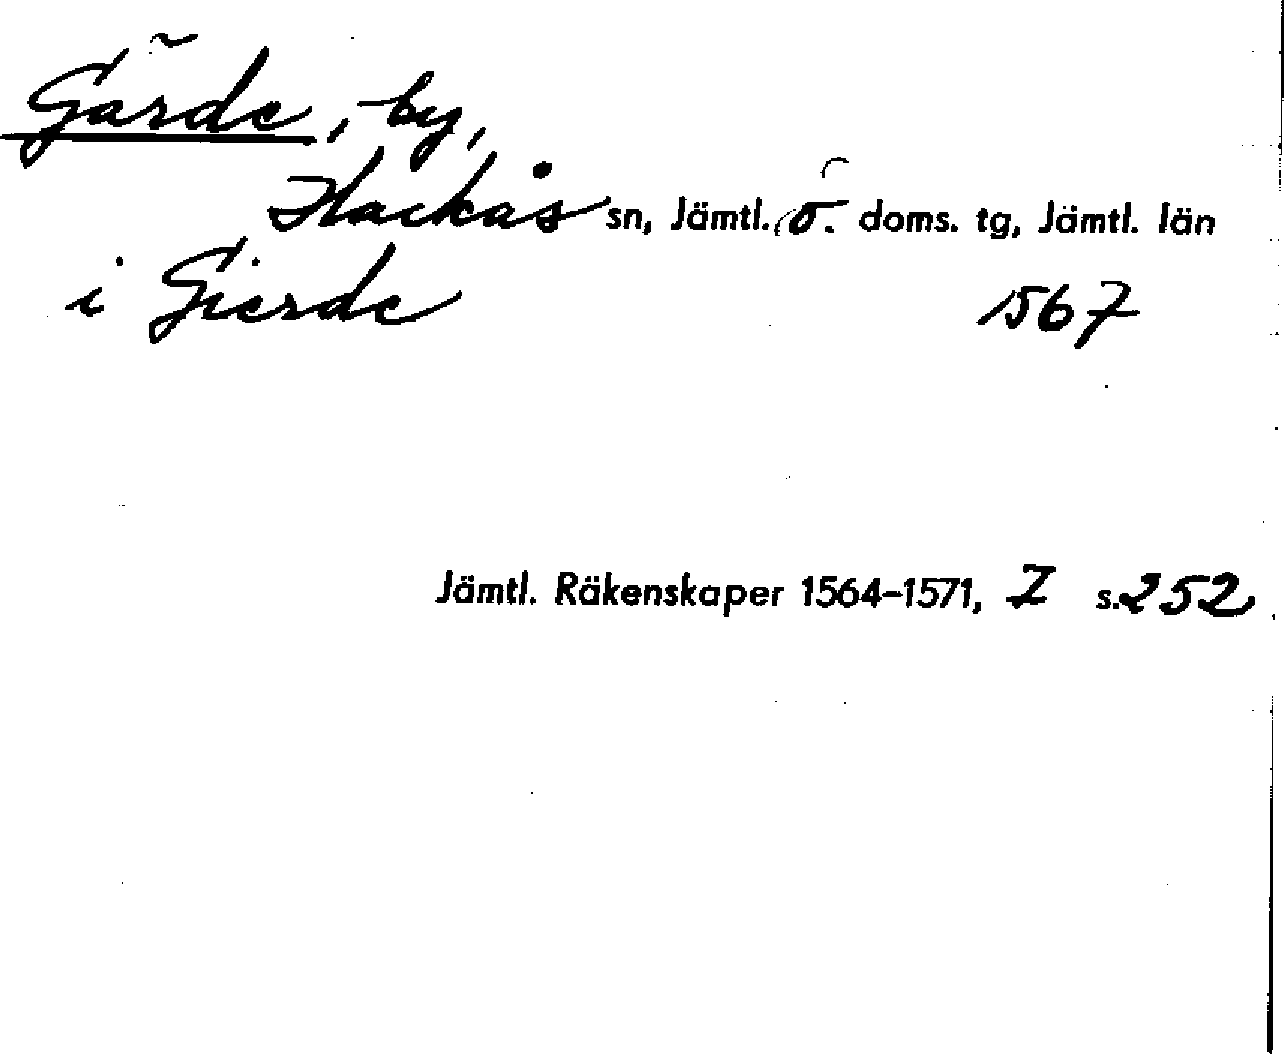 Gärde, by,
Hackås sn, Jämtl. ö. doms. tg, Jämtl. län
i Gierde 1567
Jämtl. Räkenskaper 1564-1571, I s. 252